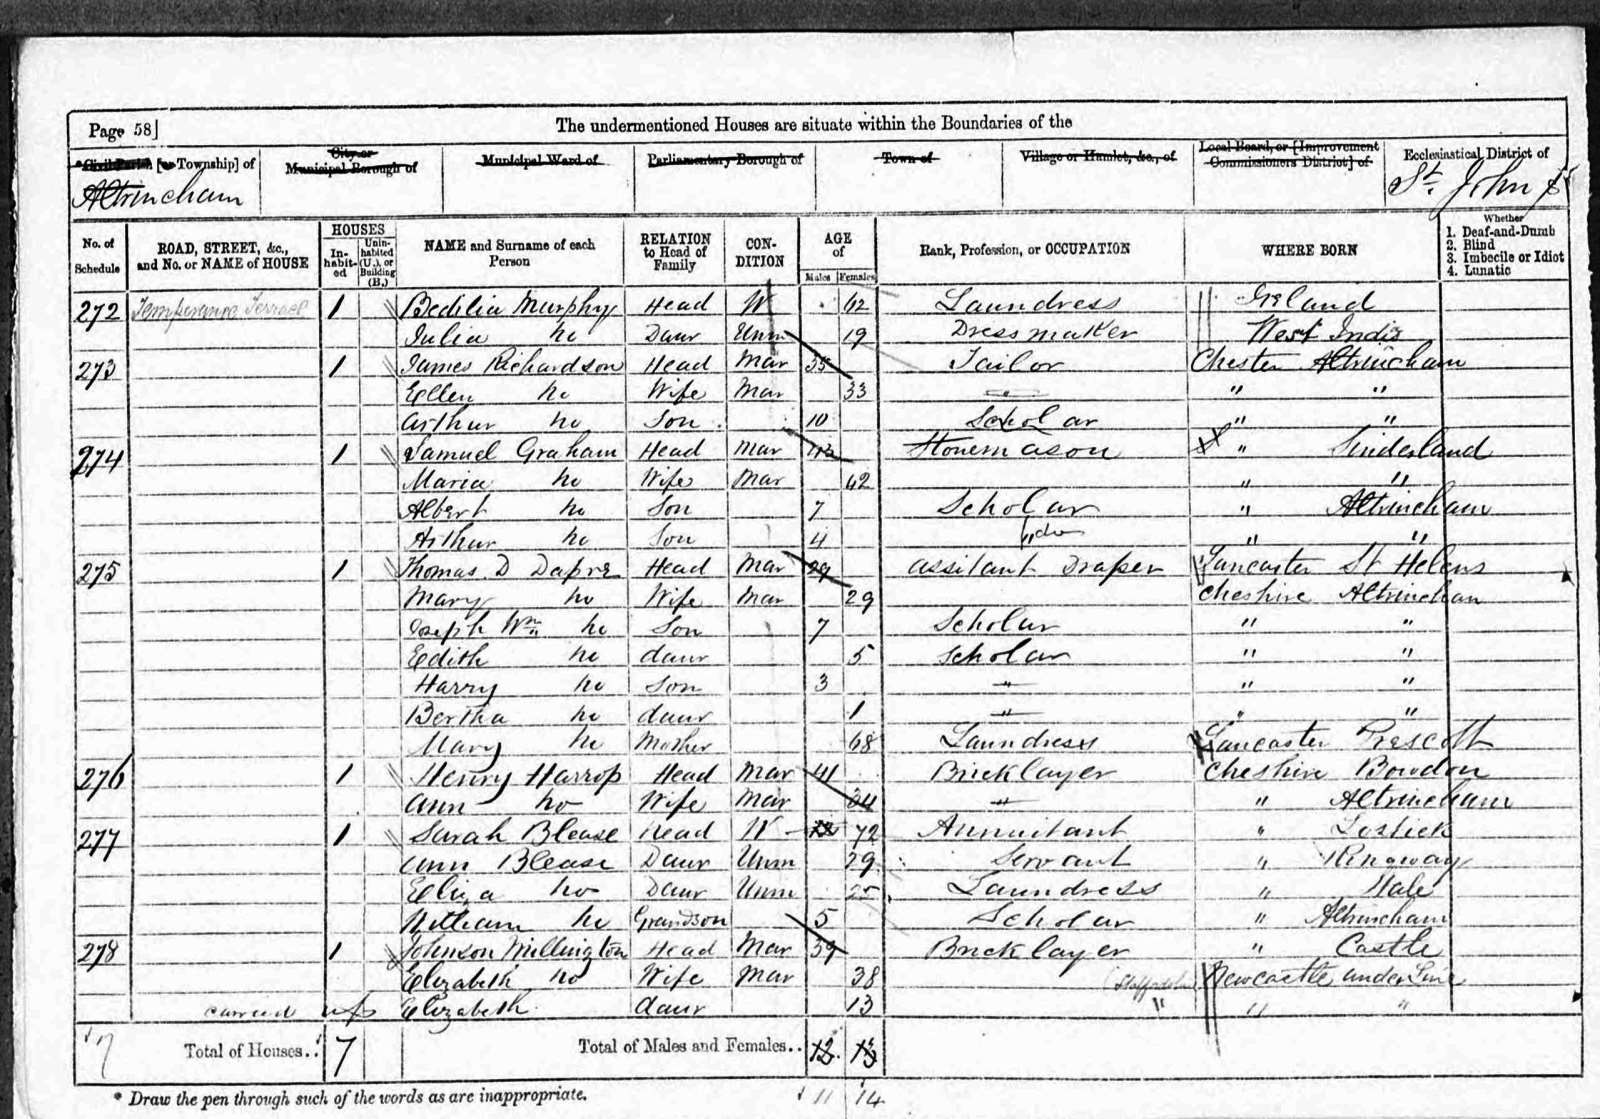 Page 58]
The undermentioned Houses are situate within the Boundaries of the
*Civil Parish [or Township] of
City or Municipal Borough of
Municipal Ward of
Parliamentary Borough of
Town of
Village or Hamlet, &c., of
Local Board, or [Improvement Commissioners District] of
Ecclesiastical District of
Altrincham
St. John's
No. of Schedule
ROAD, STREET, &c., and No. or NAME of HOUSE
HOUSES
Inhabited
Uninhabited (U.), or Building (B.)
NAME and Surname of each Person
RELATION to Head of Family
CONDITION
AGE of
Males Females
Rank, Profession, or OCCUPATION
WHERE BORN
Whether
1. Deaf-and-Dumb
2. Blind
3. Imbecile or Idiot
4. Lunatic
272 Temperance Terrace 1 Bedilia Murphy Head W 62 Laundress Ireland
Julia Do Daur Unm 19 Dressmaker West Indis
273 1 James Richardson Head Mar 35 Tailor Chester Altrincham
Ellen Do Wife Mar 33 " "
Arthur Do Son 10 Scholar " "
274 1 Samuel Graham Head Mar Stonemason " Sinderland
Maria Do Wife Mar 42 " "
Albert Do Son 7 Scholar " Altrincham
Arthur Do Son 4 " do " "
275 1 Thomas D Dapre Head Mar 29 Assitant Draper Lancaster St Helens
Mary Do Wife Mar 29 Cheshire Altrincham
Joseph Wm Do Son 7 Scholar " "
Edith Do daur 5 Scholar " "
Harry Do Son 3 " " "
Bertha Do daur 1 " " "
Mary Do Mother 68 Laundress Lancaster Prescott
276 1 Henry Harrop Head Mar 41 Bricklayer Cheshire Bowdon
Ann Do Wife Mar 34 " " Altrincham
277 1 Sarah Blease Head W 72 Annuitant " Lostick
Ann Blease Daur Unm 29 Servant " Ringway
Eliza Do Daur Unm 25 Laundress " Hale
William Do Grandson 5 Scholar " Altrincham
278 1 Johnson Millington Head Mar 39 Bricklayer " Castle
Elizabeth Do Wife Mar 38 Newcastle under Line
carried up Elizabeth daur 13 " " "
7 Total of Houses.. 7 Total of Males and Females.. 12 13
11 14
* Draw the pen through such of the words as are inappropriate.